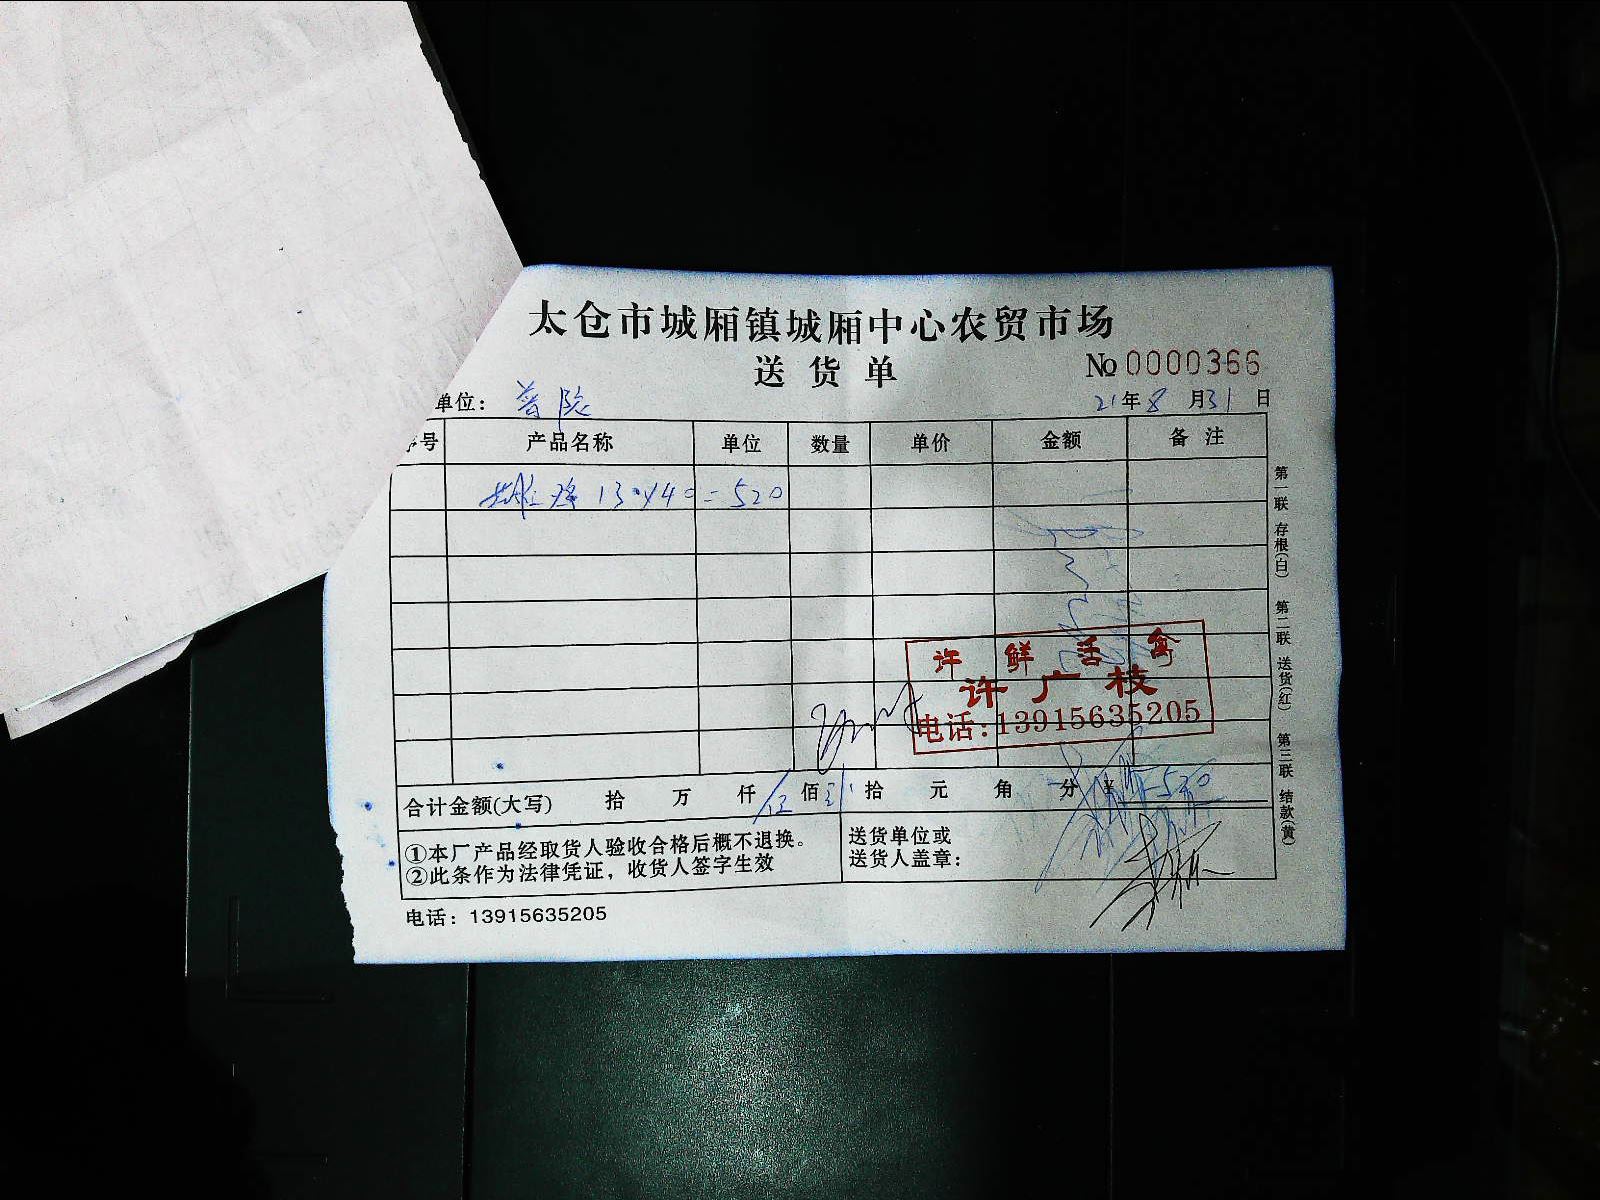 太仓市城厢镇城厢中心农贸市场
送货单
№ 0000366
单位：普院
21年8月31日
序号 产品名称 单位 数量 单价 金额 备注
13×40=520
许鲜活禽
许广枝
电话:13915635205
合计金额(大写) 拾 万 仟 伍佰 拾 元 角 分 ¥ 520
①本厂产品经取货人验收合格后概不退换。
②此条作为法律凭证，收货人签字生效
送货单位或
送货人盖章：
电话：13915635205
第一联 存根(白) 第二联 送货(红) 第三联 结款(黄)